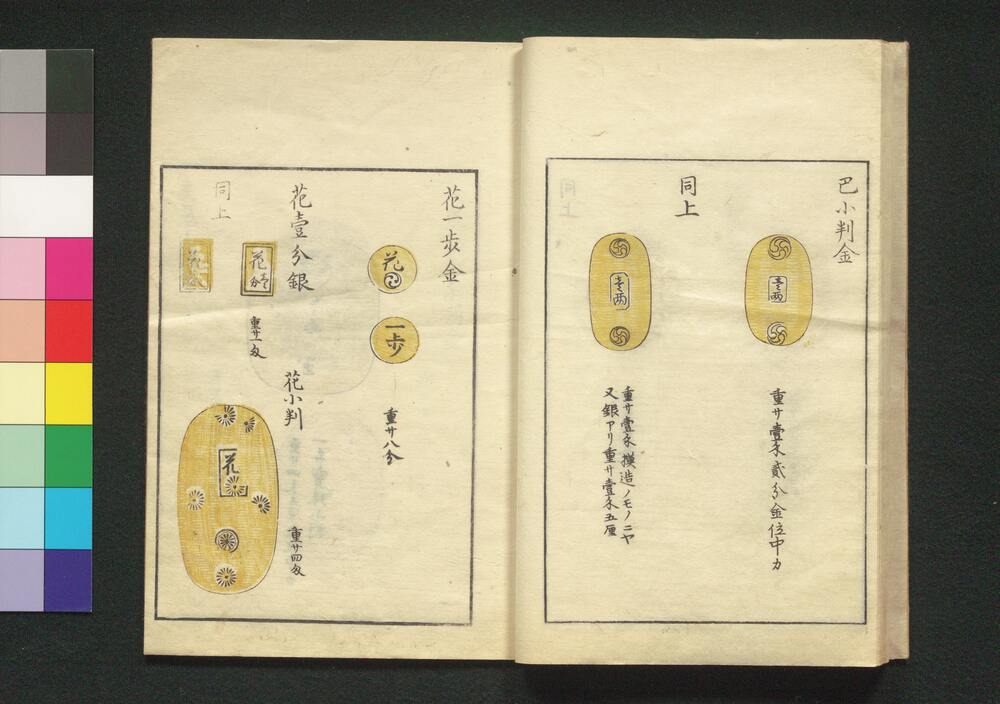 巴小判金
壱両
重サ壹匁貳分金位中カ
同上
壱両
重サ壹匁摸造ノモノニヤ
又銀アリ重サ壹匁五厘
花一歩金
花
一歩
重サ八分
花壹分銀
花壱分
重サ一匁
同上
花
花小判
花
重サ四匁